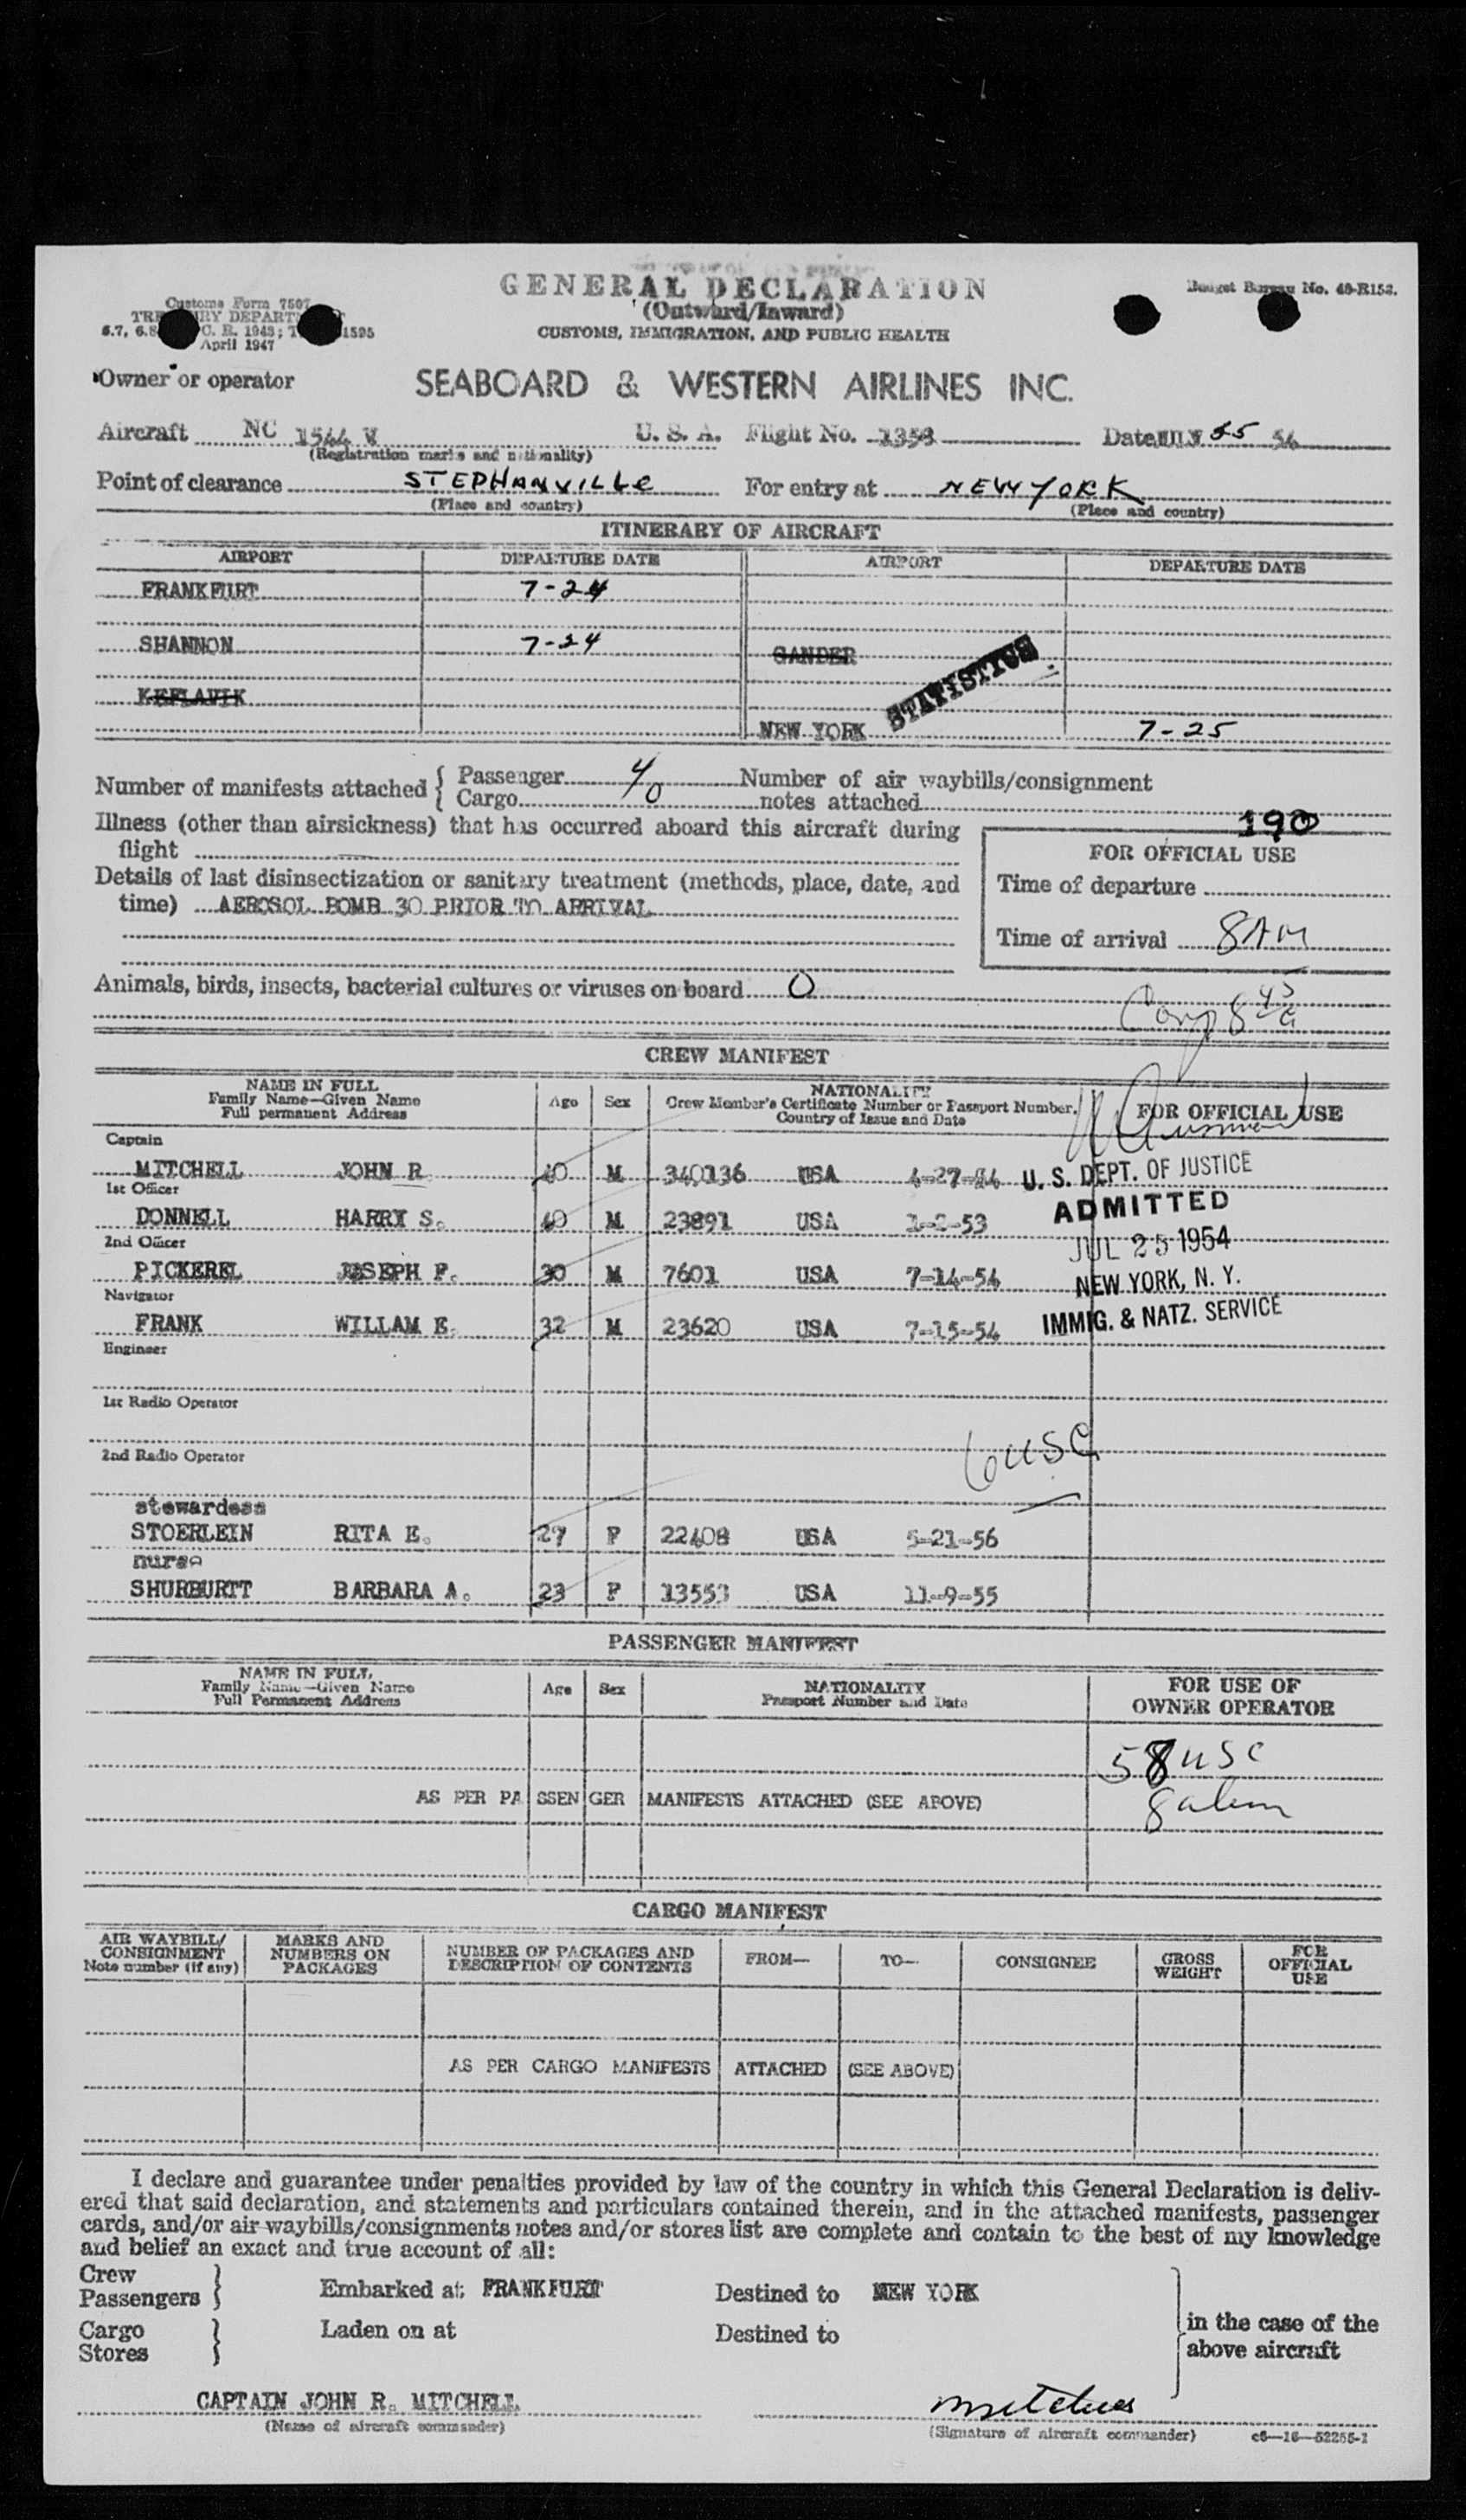 GENERAL DECLARATION
(Outward/Inward)
CUSTOMS, IMMIGRATION, AND PUBLIC HEALTH
Customs Form 7507
April 1947
Budget Bureau No. 48-R153.
Owner or operator SEABOARD & WESTERN AIRLINES INC.
Aircraft NC 1544 V U. S. A. Flight No. 1358 Date JULY 25 54
(Registration marks and nationality)
Point of clearance STEPHANVILLE For entry at NEW YORK
(Place and country) (Place and country)
ITINERARY OF AIRCRAFT
AIRPORT DEPARTURE DATE AIRPORT DEPARTURE DATE
FRANKFURT 7-24
SHANNON 7-24 GANDER
STATISTICS
KEFLAVIK
NEW YORK 7-25
Number of manifests attached { Passenger 4 Number of air waybills/consignment
Cargo 0 notes attached
190
Illness (other than airsickness) that has occurred aboard this aircraft during
flight
FOR OFFICIAL USE
Details of last disinsectization or sanitary treatment (methods, place, date, and
time) AEROSOL BOMB 30 PRIOR TO ARRIVAL
Time of departure
Time of arrival 8 AM
Animals, birds, insects, bacterial cultures or viruses on board 0
8 45
CREW MANIFEST
NAME IN FULL
Family Name—Given Name
Full permanent Address
Age Sex
NATIONALITY
Crew Member's Certificate Number or Passport Number.
Country of Issue and Date
FOR OFFICIAL USE
Captain
MITCHELL JOHN R 40 M 340136 USA
1st Officer
DONNELL HARRY S. 40 M 23891 USA 1-2-53
2nd Officer
PICKEREL JOSEPH F. 30 M 7601 USA 7-14-54
Navigator
FRANK WILLAM E. 32 M 23620 USA 7-15-54
U. S. DEPT. OF JUSTICE
ADMITTED
JUL 25 1954
NEW YORK, N. Y.
IMMIG. & NATZ. SERVICE
Engineer
1st Radio Operator
6 USC
2nd Radio Operator
stewardess
STOERLEIN RITA E. 27 F 22408 USA 5-21-56
nurse
SHURBURTT BARBARA A. 23 F 13553 USA 11-9-55
PASSENGER MANIFEST
NAME IN FULL
Family Name—Given Name
Full Permanent Address
Age Sex
NATIONALITY
Passport Number and Date
FOR USE OF
OWNER OPERATOR
58 USC
8 alien
AS PER PASSENGER MANIFESTS ATTACHED (SEE ABOVE)
CARGO MANIFEST
AIR WAYBILL/
CONSIGNMENT
Note number (if any)
MARKS AND
NUMBERS ON
PACKAGES
NUMBER OF PACKAGES AND
DESCRIPTION OF CONTENTS
FROM— TO— CONSIGNEE
GROSS
WEIGHT
FOR
OFFICIAL
USE
AS PER CARGO MANIFESTS ATTACHED (SEE ABOVE)
I declare and guarantee under penalties provided by law of the country in which this General Declaration is deliv-
ered that said declaration, and statements and particulars contained therein, and in the attached manifests, passenger
cards, and/or air waybills/consignments notes and/or stores list are complete and contain to the best of my knowledge
and belief an exact and true account of all:
Crew
Passengers } Embarked at FRANKFURT Destined to NEW YORK
Cargo
Stores } Laden on at Destined to
in the case of the
above aircraft
CAPTAIN JOHN R. MITCHELL Mitchell
(Name of aircraft commander) (Signature of aircraft commander) c6—16—52255-1